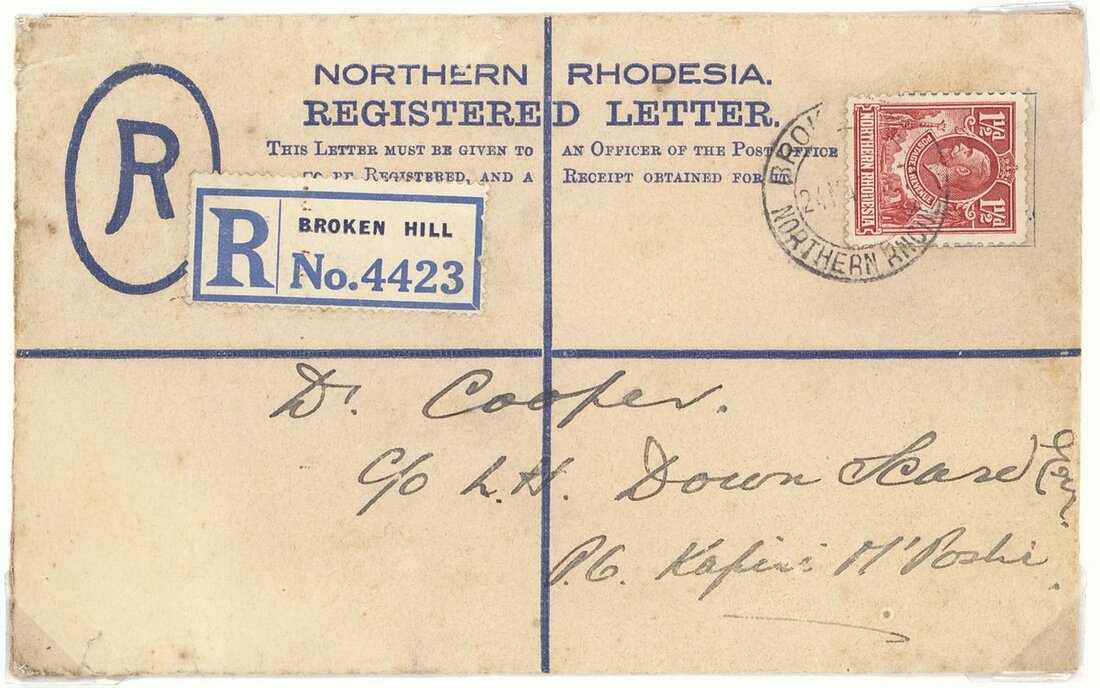 NORTHERN RHODESIA.
REGISTERED LETTER.
THIS LETTER MUST BE GIVEN TO AN OFFICER OF THE POST OFFICE
TO BE REGISTERED, AND A RECEIPT OBTAINED FOR IT.
R
R BROKEN HILL
No. 4423
BROK
24
NORTHERN RHODE
1½d
POSTAGE & REVENUE
NORTHERN RHODESIA
1½d
Dr. Cooper.
C/o L.H. Down Esq.
P.O. Kapiri M'Poshi.